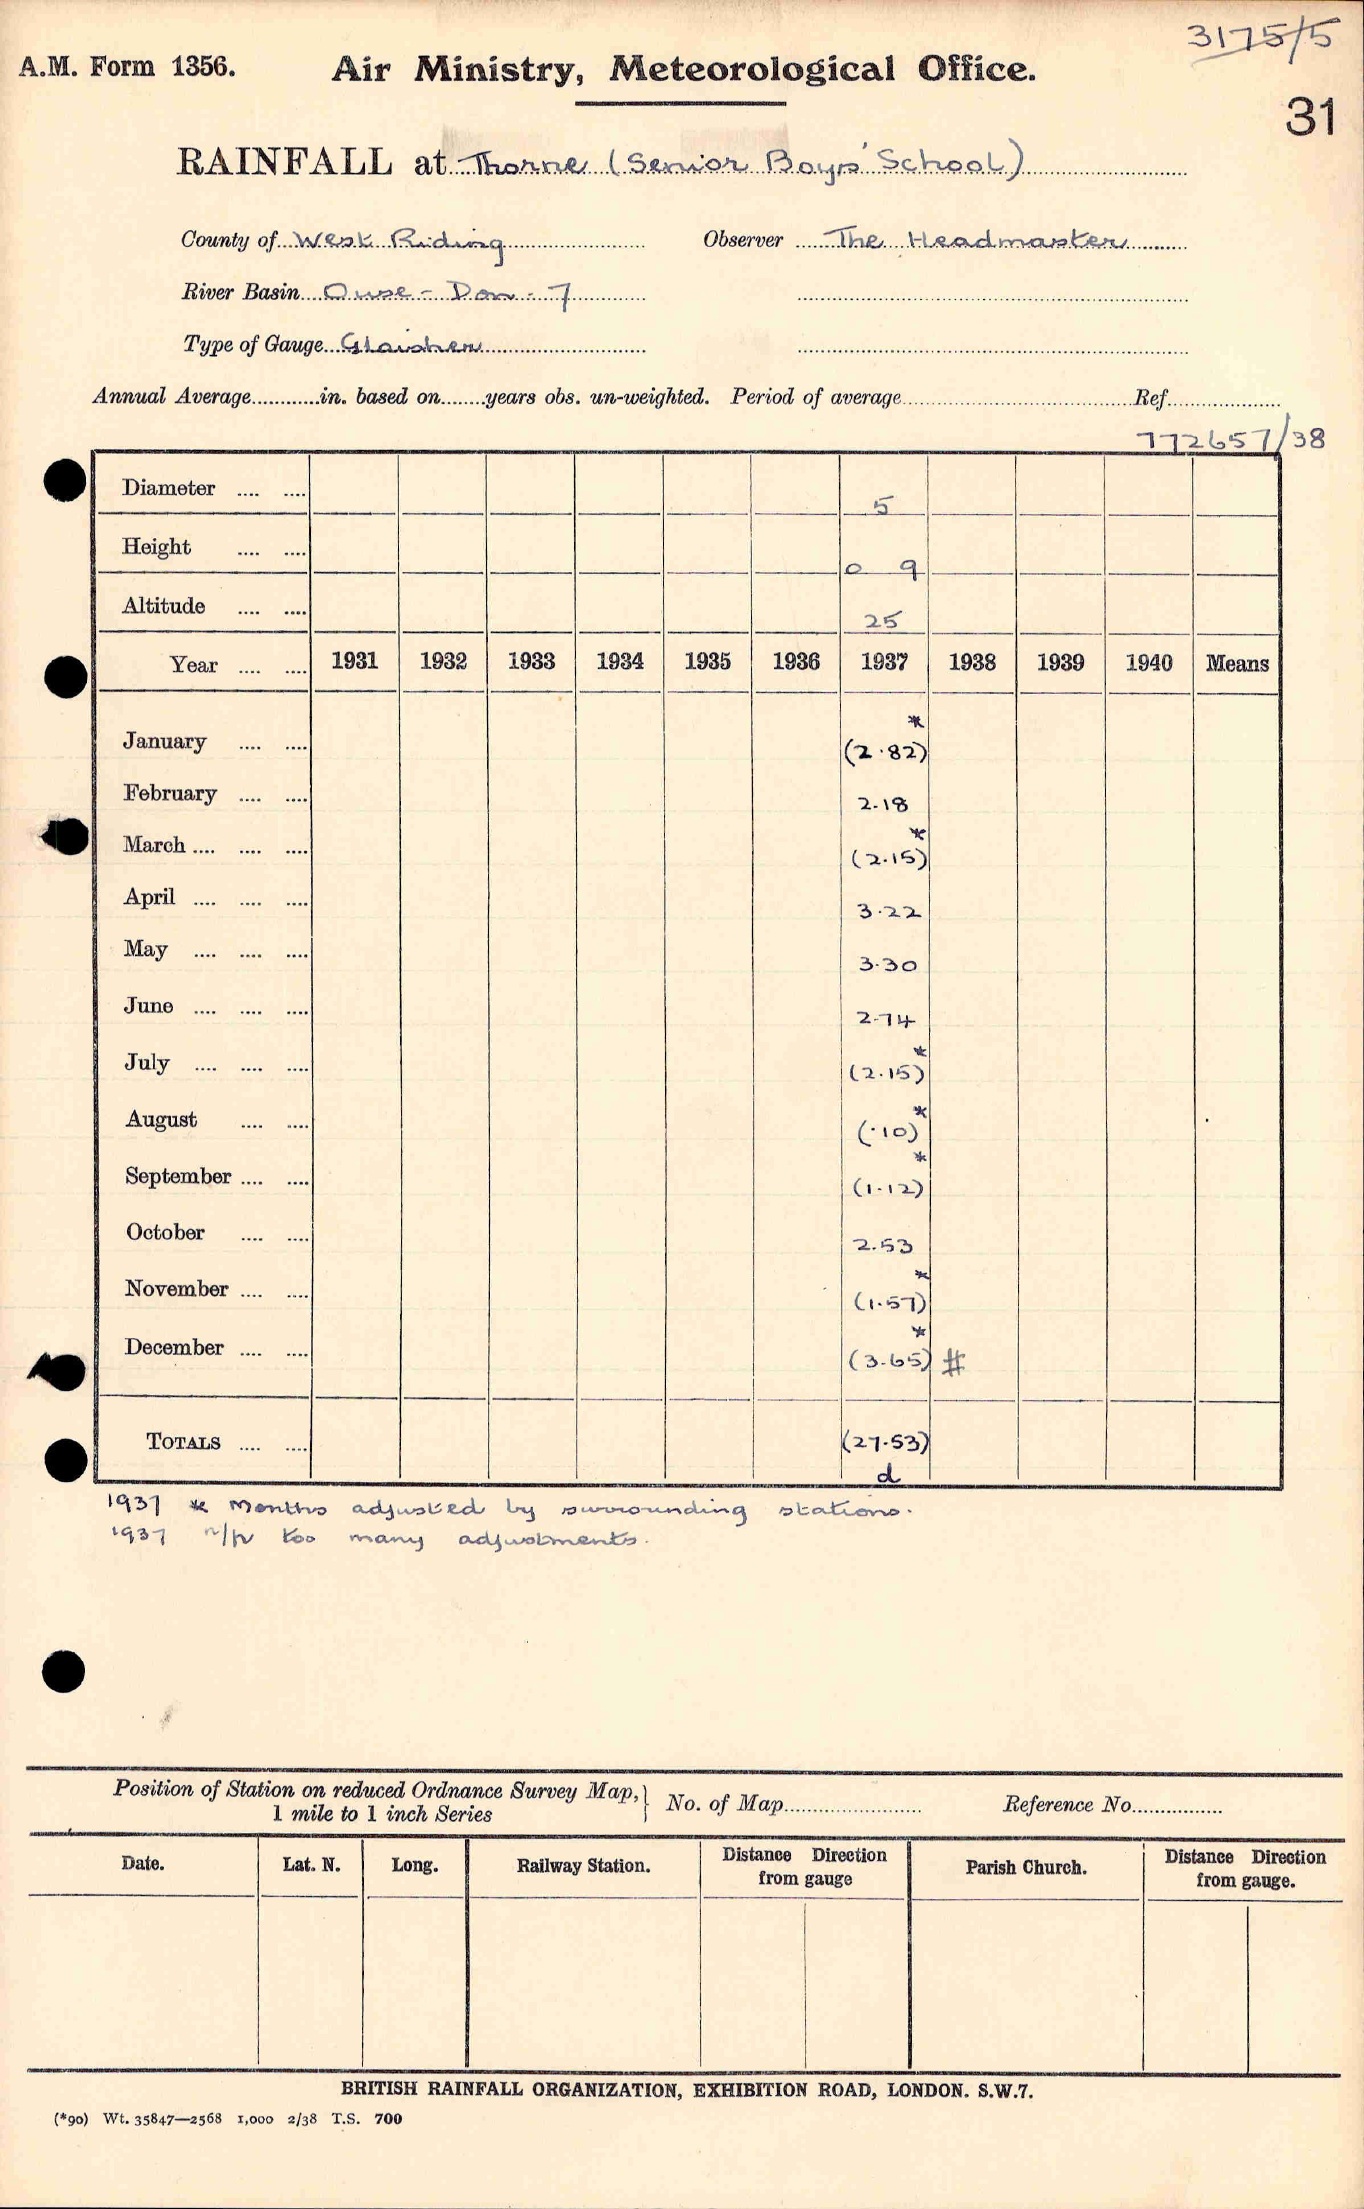 3175/5
A.M. Form 1356. Air Ministry, Meteorological Office.
31
RAINFALL at Thorne (Senior Boys' School)
County of West Riding Observer The Headmaster
River Basin Ouse - Don - 7
Type of Gauge Glaisher
Annual Average............in. based on.......years obs. un-weighted. Period of average.................... Ref....................
772657/38
Diameter .... .... 5
Height .... .... 0 9
Altitude .... .... 25
Year .... .... 1931 1932 1933 1934 1935 1936 1937 1938 1939 1940 Means
January .... .... (2.82)*
February .... .... 2.18
March .... .... .... (2.15)*
April .... .... .... 3.22
May .... .... .... 3.30
June .... .... .... 2.74
July .... .... .... (2.15)*
August .... .... (.10)*
September .... .... (1.12)*
October .... .... 2.53
November .... .... (1.57)*
December .... .... (3.65)* #
TOTALS .... .... (27.53)
d
1937 * Months adjusted by surrounding stations.
1937 n/p too many adjustments.
Position of Station on reduced Ordnance Survey Map, } No. of Map.................... Reference No................
1 mile to 1 inch Series
Date. Lat. N. Long. Railway Station. Distance Direction from gauge Parish Church. Distance Direction from gauge.
BRITISH RAINFALL ORGANIZATION, EXHIBITION ROAD, LONDON. S.W.7.
(*90) Wt. 35847—2568 1,000 2/38 T.S. 700